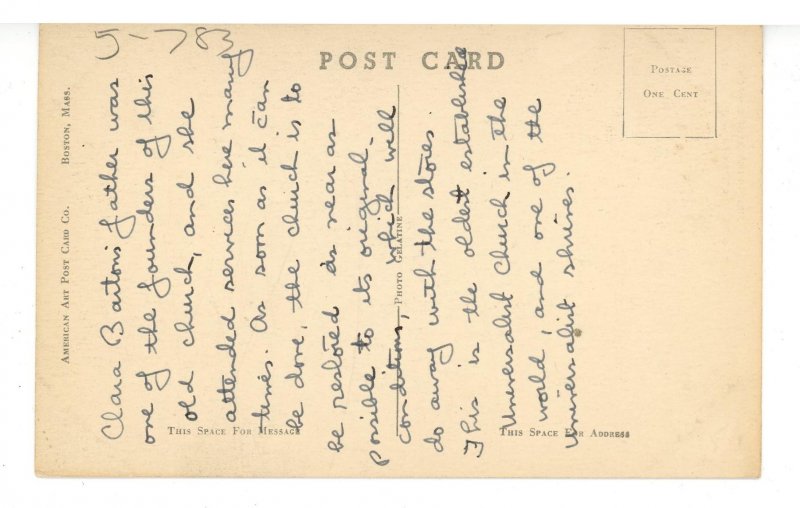 5-783
POST CARD
POSTAGE
ONE CENT
AMERICAN ART POST CARD CO. BOSTON, MASS.
PHOTO GELATINE
THIS SPACE FOR MESSAGE
THIS SPACE FOR ADDRESS
Clara Barton's father was
one of the founders of this
old church, and she
attended services here many
times. As soon as it can
be done, the church is to
be restored as near as
possible to its original
conditions, which will
do away with the stores.
This is the oldest established
Universalist Church in the
world, and one of the
Universalist shrines.